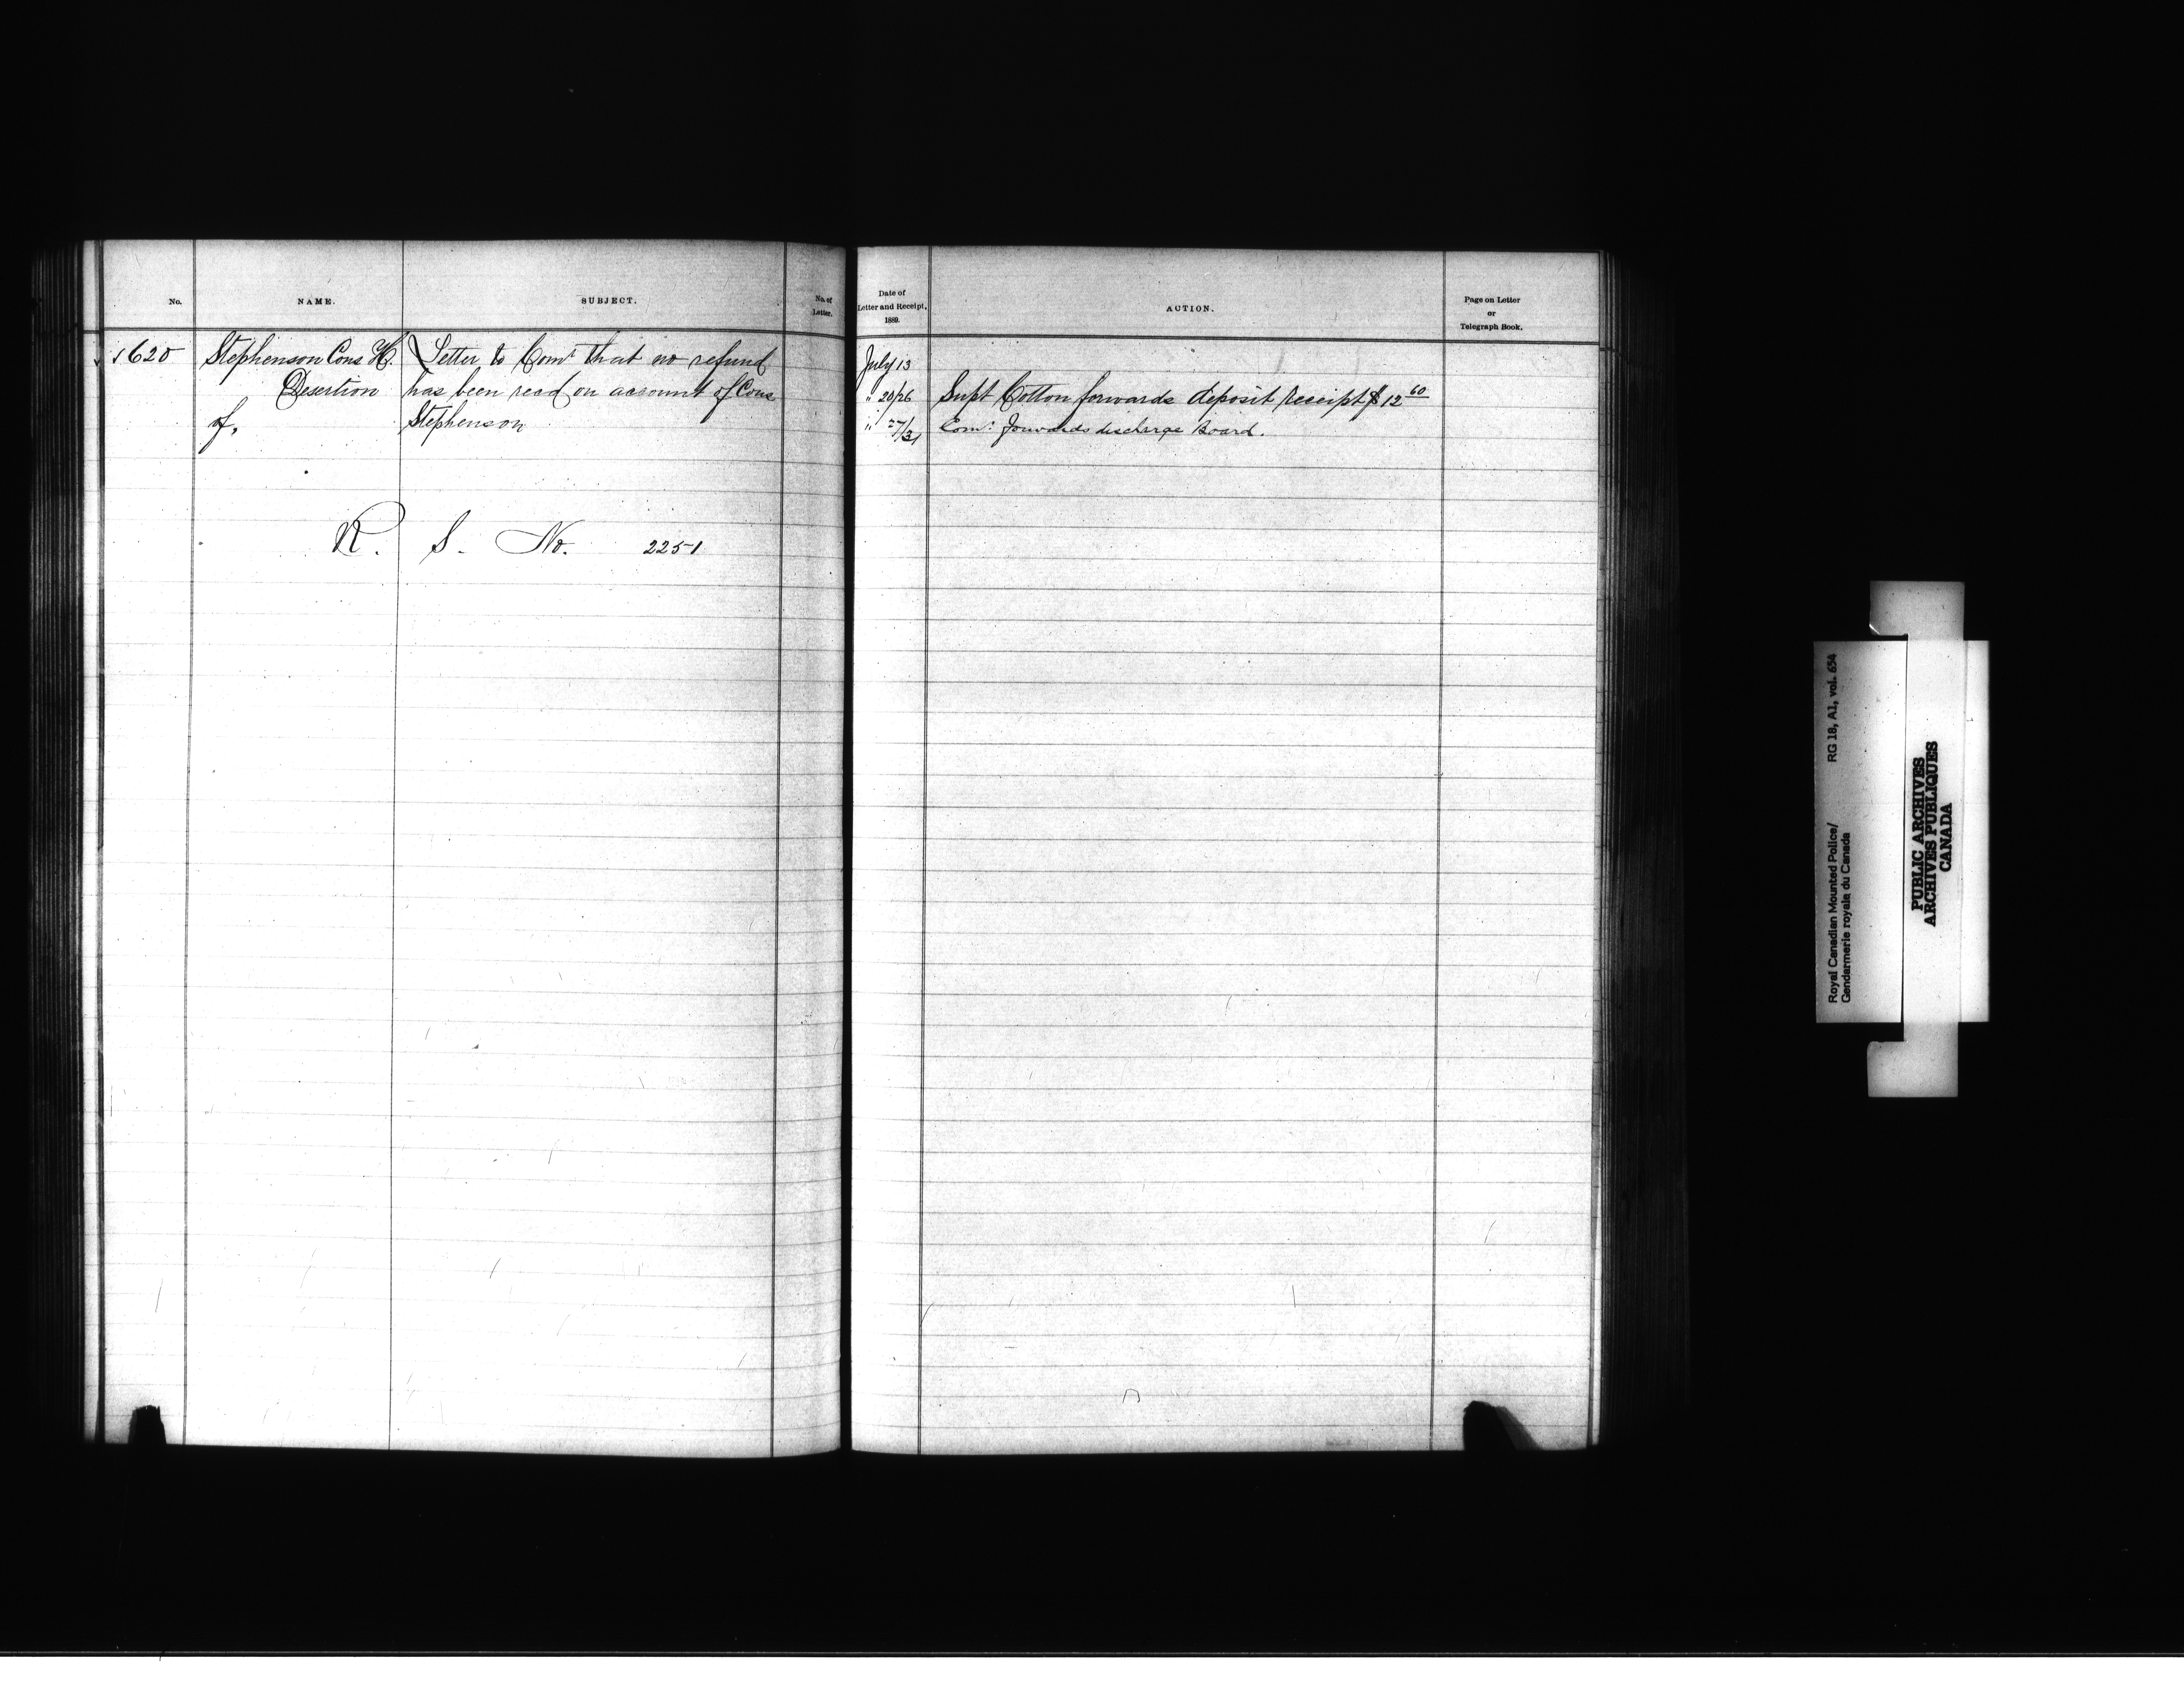 No.
NAME.
SUBJECT.
No. of
Letter.
Date of
Letter and Receipt,
1889.
ACTION.
Page on Letter
or
Telegraph Book.
620
Stephenson Cons H.
Desertion
of,
Letter to Comr that no refund
has been recd on account of Cons
Stephenson
July 13
" 20/26
Supt Cotton forwards deposit receipt $12 60
" 27/31
Comr forwards discharge Board.
R. S. No. 2251
Royal Canadian Mounted Police/
Gendarmerie royale du Canada
RG 18, A1, vol. 654
PUBLIC ARCHIVES
ARCHIVES PUBLIQUES
CANADA